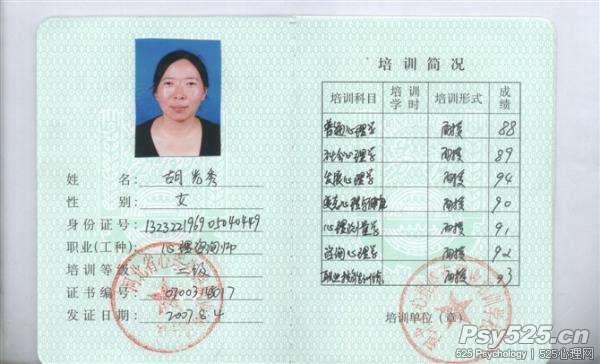 姓 名: 胡 秀
性 别: 女
身份证号:
职业(工种): 心理咨询师
培训等级: 二级
证书编号:
发证日期: 2007.8.4
培训简况
培训科目 培训学时 培训形式 成绩
普通心理学 面授 88
社会心理学 面授 89
发展心理学 面授 94
心理健康 面授 90
心理测量学 面授 91
咨询心理学 面授 92
职业技能训练 面授 93
培训单位(章)
Psy525.cn
525 Psychology | 525心理网